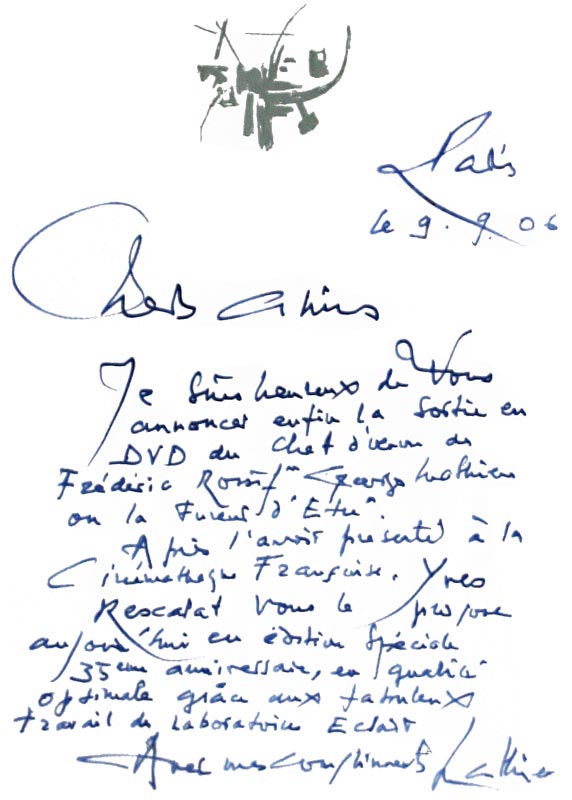 Paris
le 9.9.06
Chers amis
Je suis heureux de Vous
annoncer enfin la Sortie en
DVD du Chef d'œuvre de
Frédéric Rossif "Georges Mathieu
ou la Fureur d'Etre".
Après l'avoir présenté à la
Cinémathèque Française, Yves
Rescalat Vous le propose
aujourd'hui en édition Spéciale
35ème anniversaire, en qualité
optimale grâce aux fabuleux
travail du Laboratoire Eclair
Avec mes compliments Mathieu